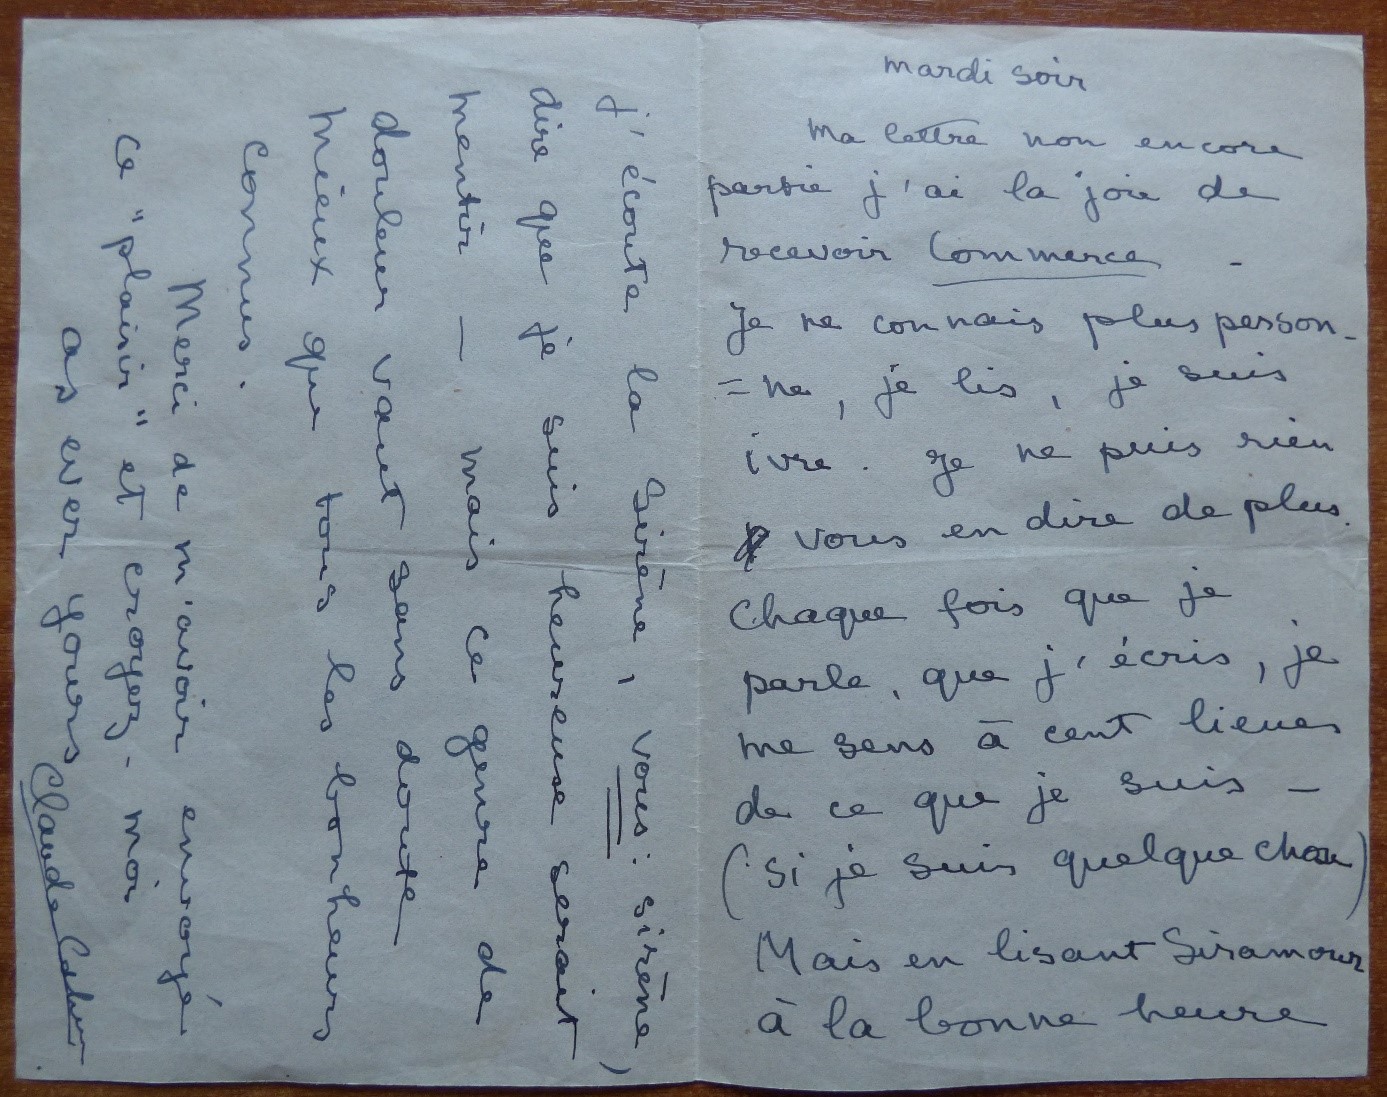 mardi soir
Ma lettre non encore
partie j'ai la joie de
recevoir Commerce -
Je ne connais plus person-
=ne, je lis, je suis
ivre. Je ne puis rien
vous en dire de plus.
Chaque fois que je
parle, que j'écris, je
me sens à cent lieues
de ce que je suis -
(si je suis quelque chose)
Mais en lisant Siramour
à la bonne heure
j'écoute la Sirène, vous: sirène,
dire que je suis heureuse serait
mentir - mais ce genre de
douleur vaut sans doute
mieux que tous les bonheurs
connus.
Merci de m'avoir envoyé
ce "plaisir" et croyez-moi
as ever yours Claude Cahun